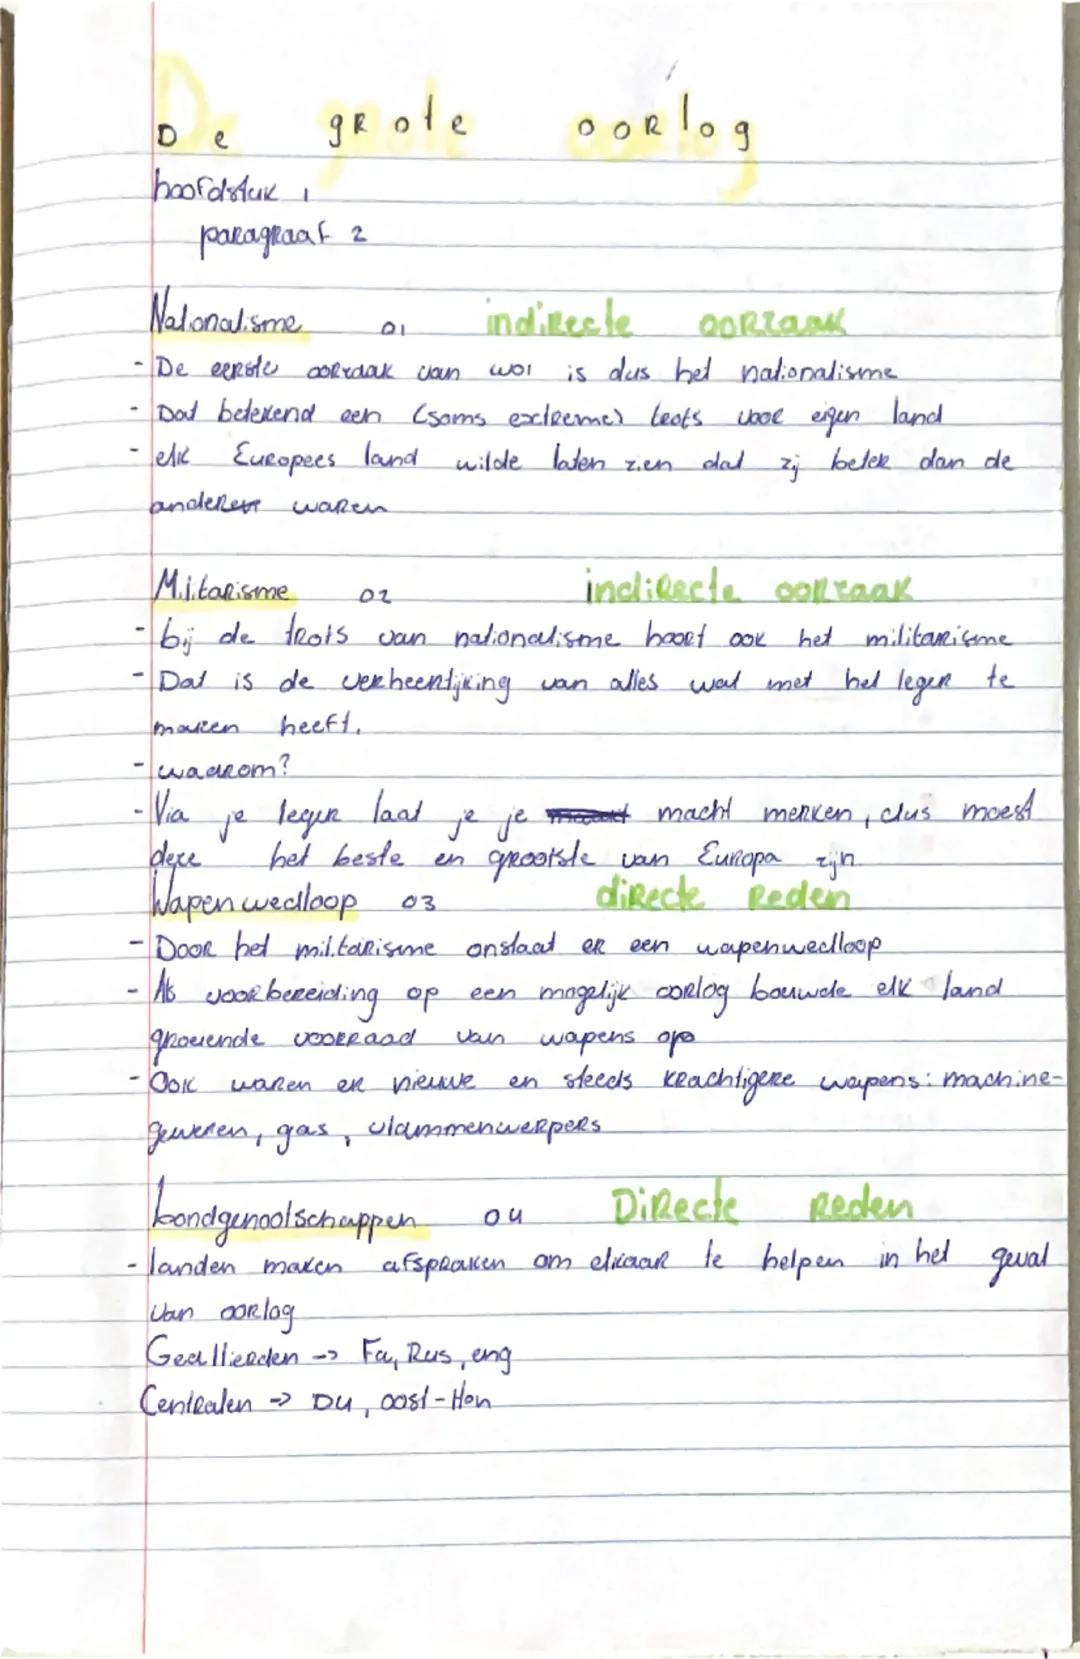 De grote oorlog
hoofdstuk 1
paragraaf 2
Nationalisme 01 indirecte oorzaak
- De eerste oorzaak van WO1 is dus het nationalisme
- Dat betekend een (soms extreme) trots voor eigen land
- elk Europees land wilde laten zien dat zij beter dan de
anderen waren
Militarisme 02 indirecte oorzaak
- bij de trots van nationalisme hoort ook het militarisme
- Dat is de verheerlijking van alles wat met het leger te
maken heeft.
- waarom?
- Via je leger laat je je macht merken, dus moest
deze het beste en grootste van Europa zijn
Wapenwedloop 03 directe Reden
- Door het militarisme onstaat er een wapenwedloop
- Als voorbereiding op een mogelijk oorlog bouwde elk land
groeiende voorraad van wapens op
- Ook waren er nieuwe en steeds krachtigere wapens: machine-
geweren, gas, vlammenwerpers
bondgenootschappen 04 Directe Reden
- landen maken afspraken om elkaar te helpen in het geval
van oorlog
Geallieerden -> Fa, Rus, eng
Centralen -> Du, oost-Hon